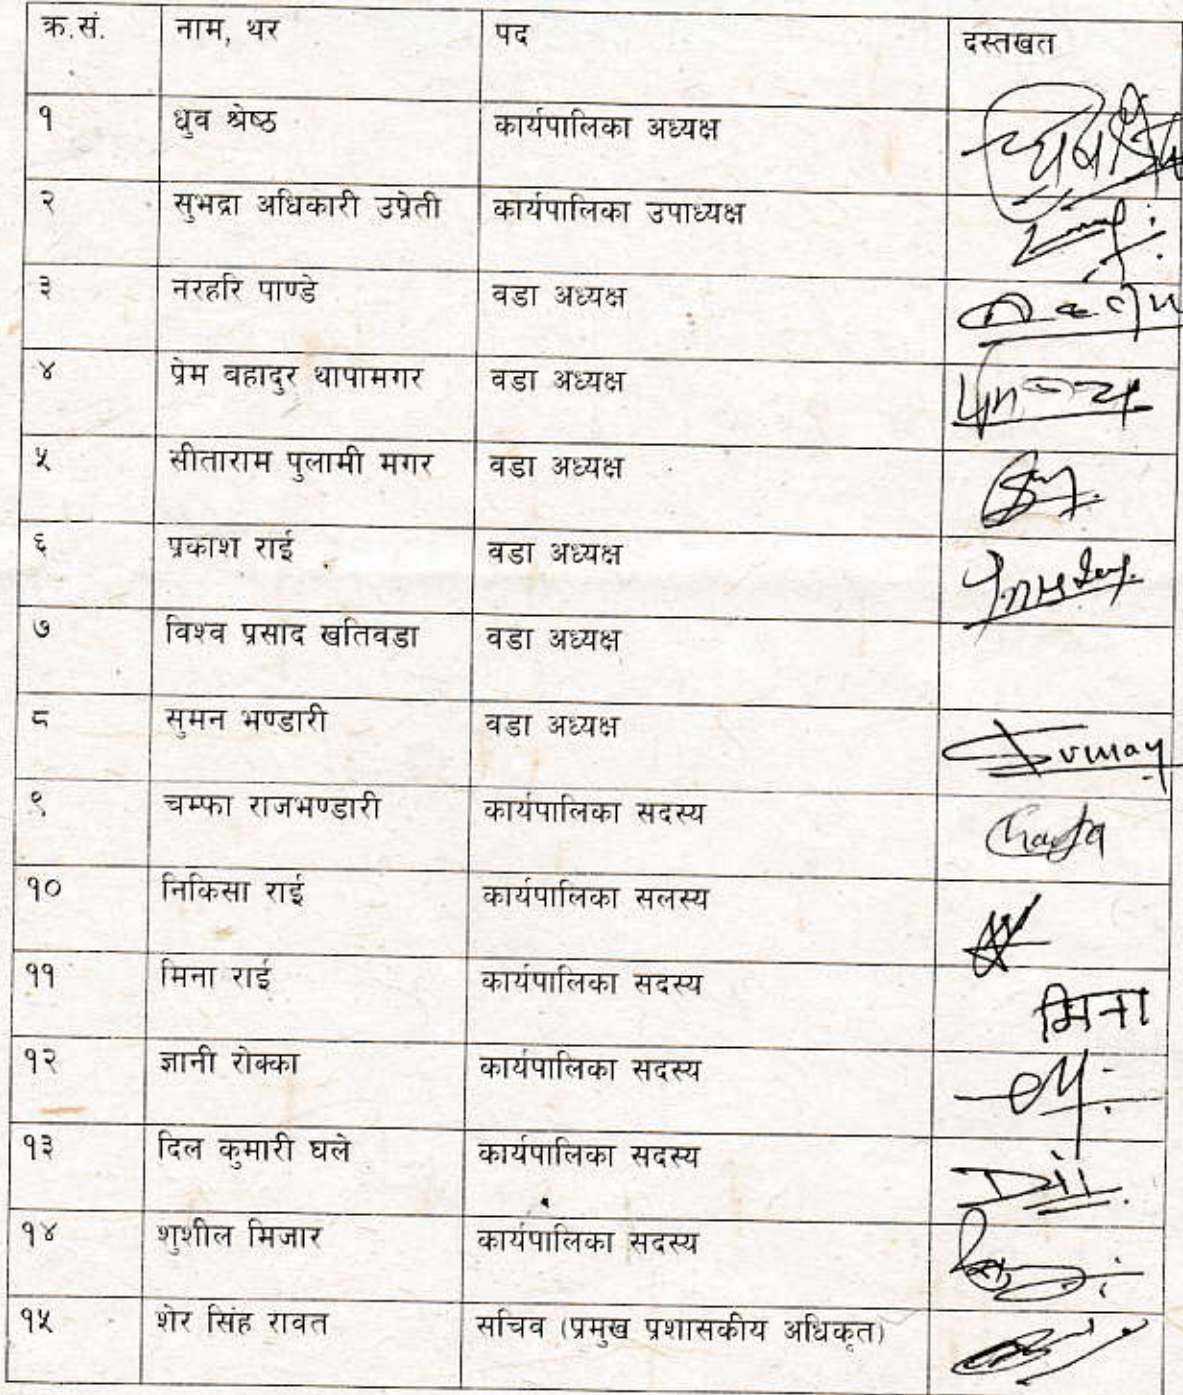 क्र.सं. नाम, थर पद दस्तखत
१ धुव श्रेष्ठ कार्यपालिका अध्यक्ष
२ सुभद्रा अधिकारी उप्रेती कार्यपालिका उपाध्यक्ष
३ नरहरि पाण्डे वडा अध्यक्ष
४ प्रेम बहादुर थापामगर वडा अध्यक्ष
५ सीताराम पुलामी मगर वडा अध्यक्ष
६ प्रकाश राई वडा अध्यक्ष
७ विश्व प्रसाद खतिवडा वडा अध्यक्ष
८ सुमन भण्डारी वडा अध्यक्ष
९ चम्फा राजभण्डारी कार्यपालिका सदस्य
१० निकिसा राई कार्यपालिका सलस्य
११ मिना राई कार्यपालिका सदस्य मिना
१२ ज्ञानी रोक्का कार्यपालिका सदस्य
१३ दिल कुमारी घले कार्यपालिका सदस्य Dil
१४ शुशील मिजार कार्यपालिका सदस्य
१५ शेर सिंह रावत सचिव (प्रमुख प्रशासकीय अधिकृत)